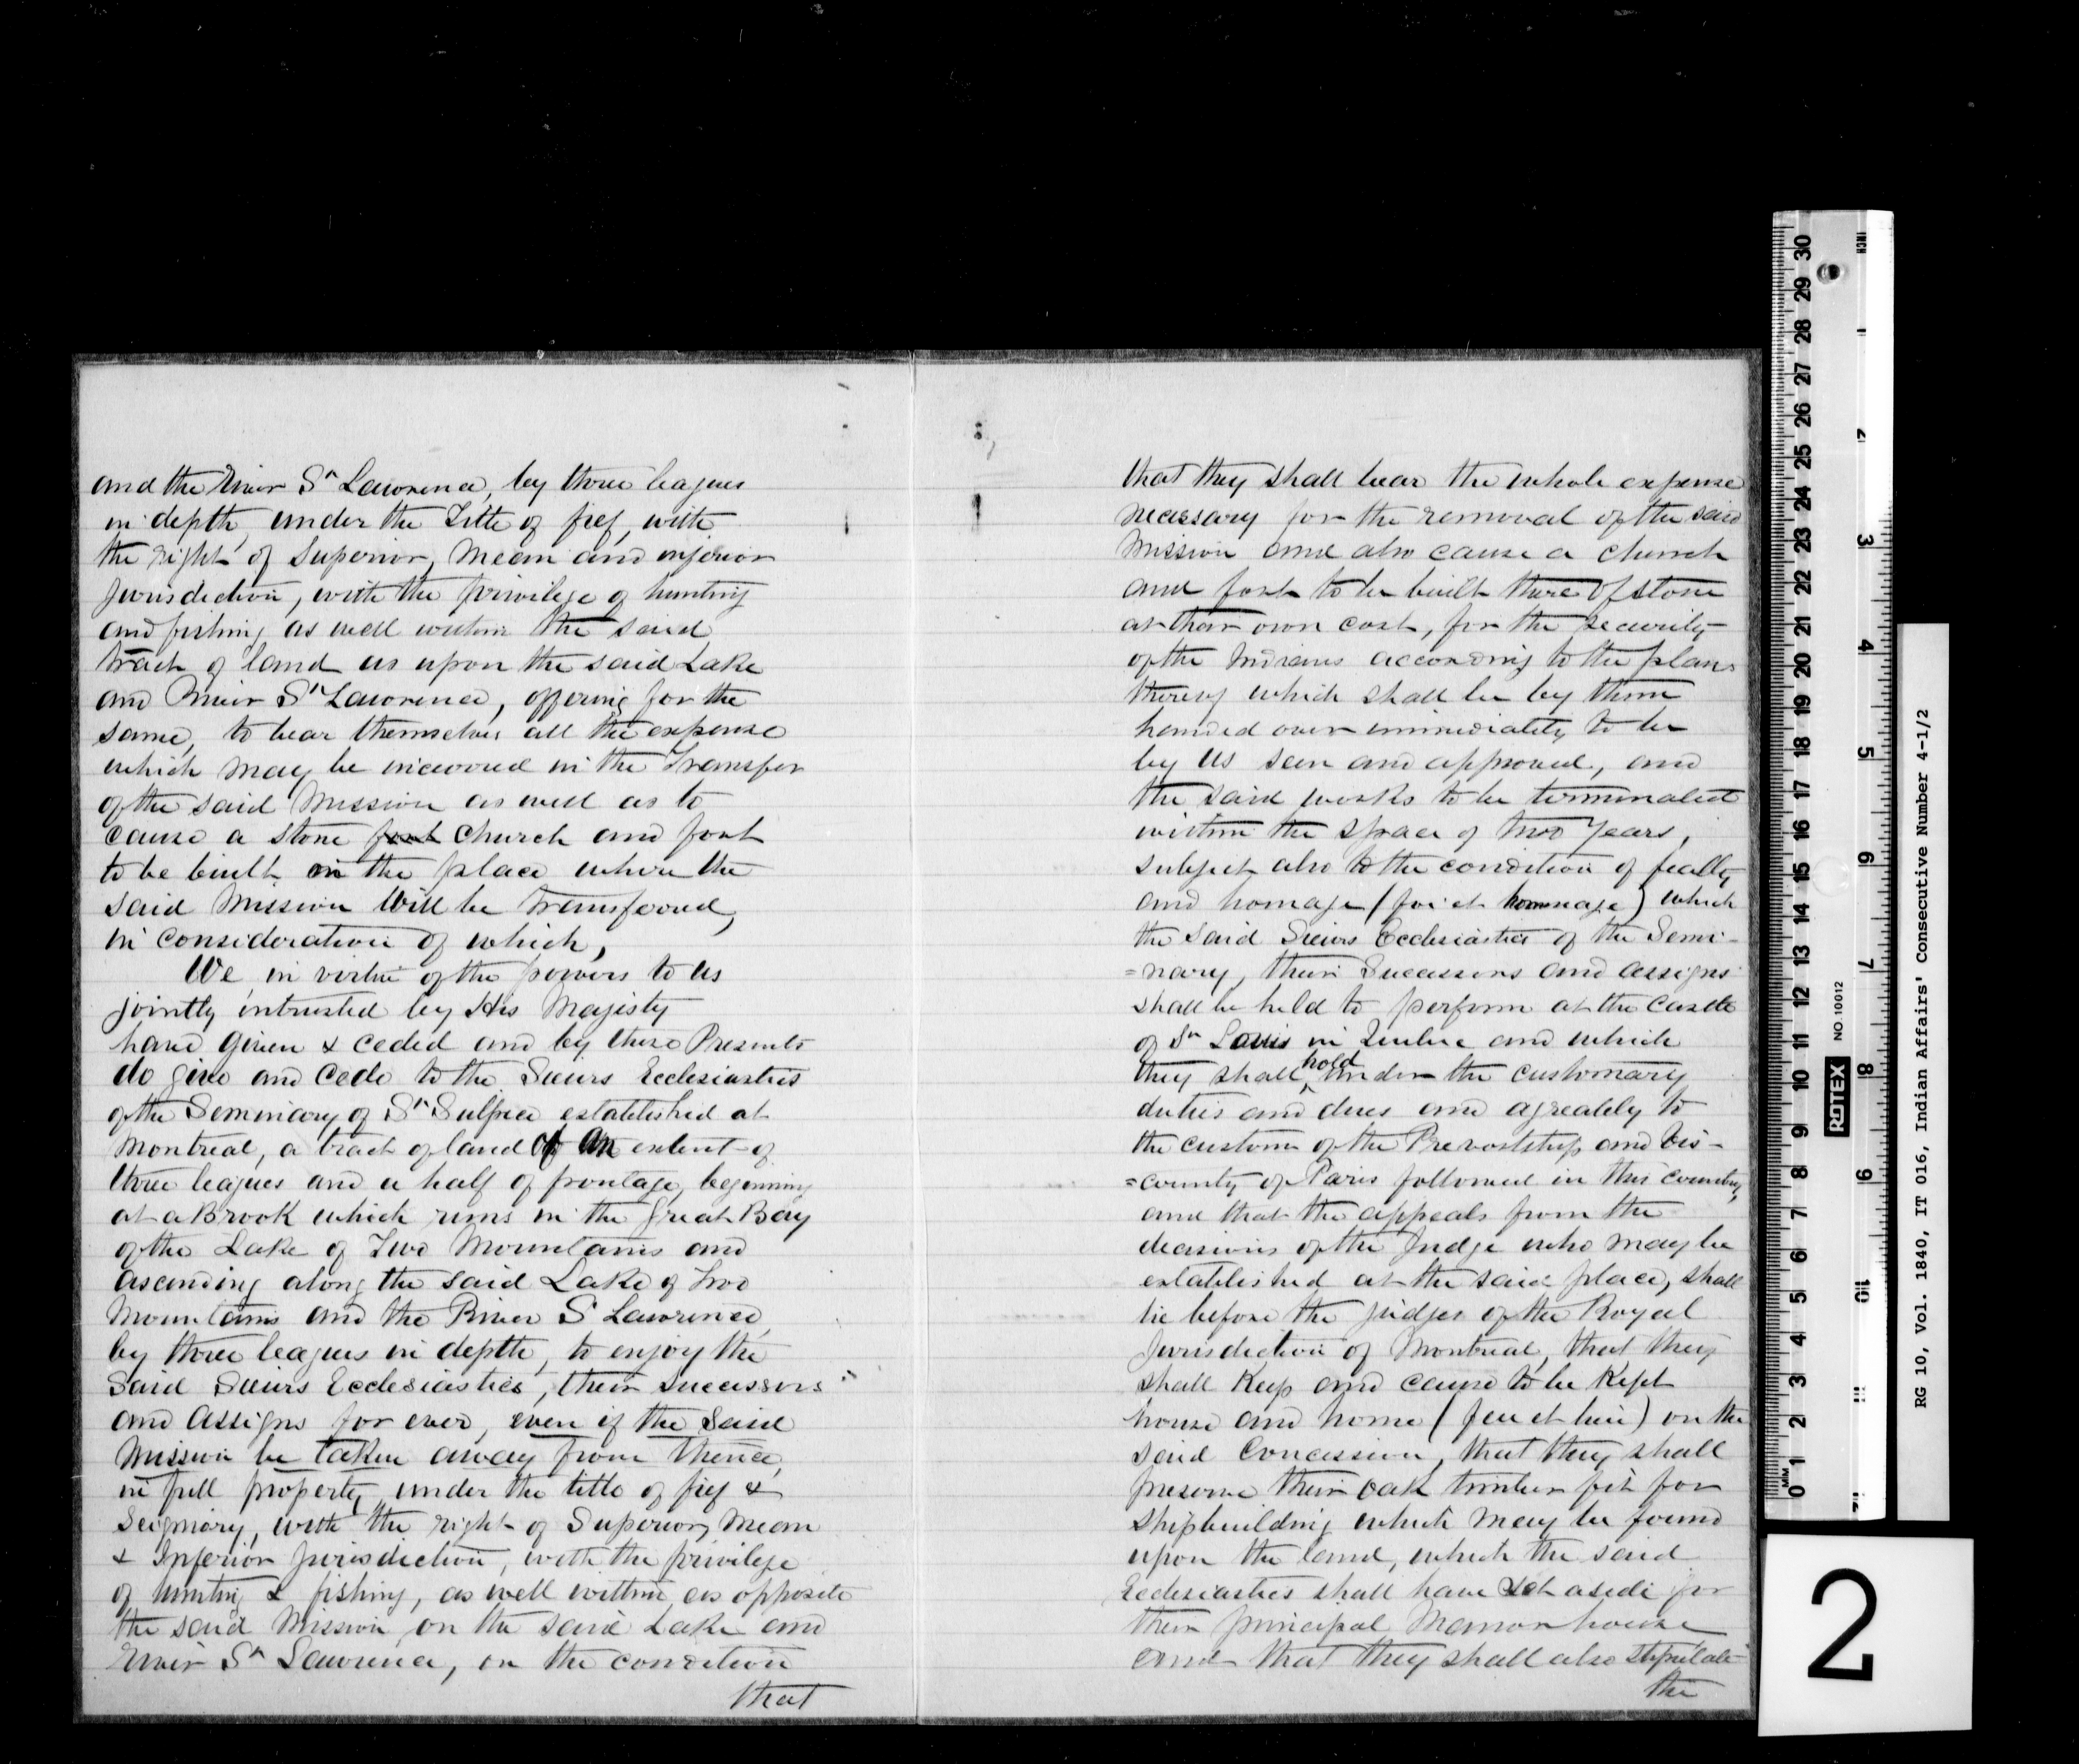 and the River St Lawrence, by three leagues
in depth, under the Title of fief, with
the right of Superior, mean and inferior
Jurisdiction, with the privilege of hunting
and fishing as well within the said
tract of land as upon the said Lake
and River St Lawrence, offering for the
same, to bear themselves all the expense
which may be incurred in the Transfer
of the said Mission as well as to
cause a stone fort church and fort
to be built in the place where the
said Mission will be transferred,
in consideration of which,
We in virtue of the powers to us
jointly intrusted by His Majesty
have given & ceded and by these Presents
do give and cede to the Sieurs Ecclesiastics
of the Seminary of St Sulpice established at
Montreal, a tract of land of an extent of
three leagues and a half of frontage, beginning
at a Brook which runs in the great Bay
of the Lake of Two Mountains and
ascending along the said Lake of Two
Mountains and the River St Lawrence,
by three leagues in depth, to enjoy the
said Sieurs Ecclesiastics, their successors
and assigns for ever, even if the said
Mission be taken away from thence,
in full property, under the title of fief &
Seigniory, with the right of Superior, mean
& Inferior Jurisdiction, with the privilege
of hunting & fishing, as well within as opposite
the said Mission, on the said Lake and
River St Lawrence, on the condition
that
that they shall bear the whole expense
necessary for the removal of the said
Mission and also cause a church
and fort to be built there of stone
at their own cost, for the security
of the Indians according to the plans
thereof which shall be by them
handed over immediately to be
by us seen and approved, and
the said works to be terminated
within the space of two years,
subject also to the condition of fealty
and homage (foi et hommage) which
the said Sieurs Ecclesiastics of the Semi-
=nary, their Successors and assigns
shall be held to perform at the Castle
of St Louis in Quebec and which
they shall hold under the customary
duties and dues and agreably to
the custom of the Prevostship and Vis-
=county of Paris followed in this country,
and that the appeals from the
decisions of the Judge who may be
established at the said place, shall
lie before the judges of the Royal
Jurisdiction of Montreal, that they
shall keep and cause to be kept
house and home (feu et lieu) on the
said Concession, that they shall
preserve their oak timber fit for
shipbuilding which may be found
upon the land, which the said
Ecclesiastics shall have set aside for
their principal Manor house
and that they shall also stipulate
the
30 29 28 27 26 25 24 23 22 21 20 19 18 17 16 15 14 13 12 11 10 9 8 7 6 5 4 3 2 1 0 MM
INCH 1 2 3 4 5 6 7 8 9 10 11 12
ROTEX NO. 10012
RG 10, Vol. 1840, IT 016, Indian Affairs' Consecutive Number 4-1/2
2